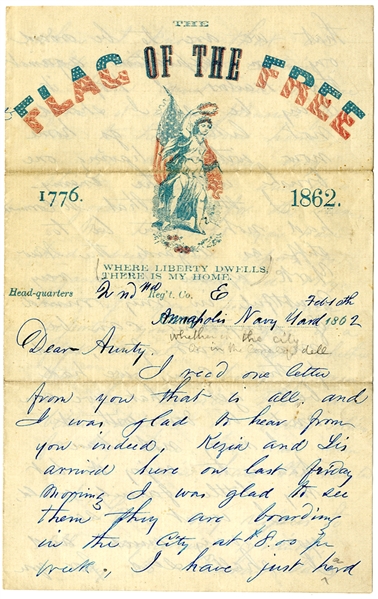 THE
FLAG OF THE FREE
1776. 1862.
WHERE LIBERTY DWELLS,
THERE IS MY HOME.
Head-quarters 2nd Reg't. Co. E
Feb 10th
Annapolis Navy Yard 1862
whether in the city
Dear Aunty.
I recd one letter
from you that is all, and
I was glad to hear from
you indeed, Kezia and Lis
arrived here on last friday
Morning I was glad to see
them they are boarding
in the City at $8.00 pr
week, I have just heard